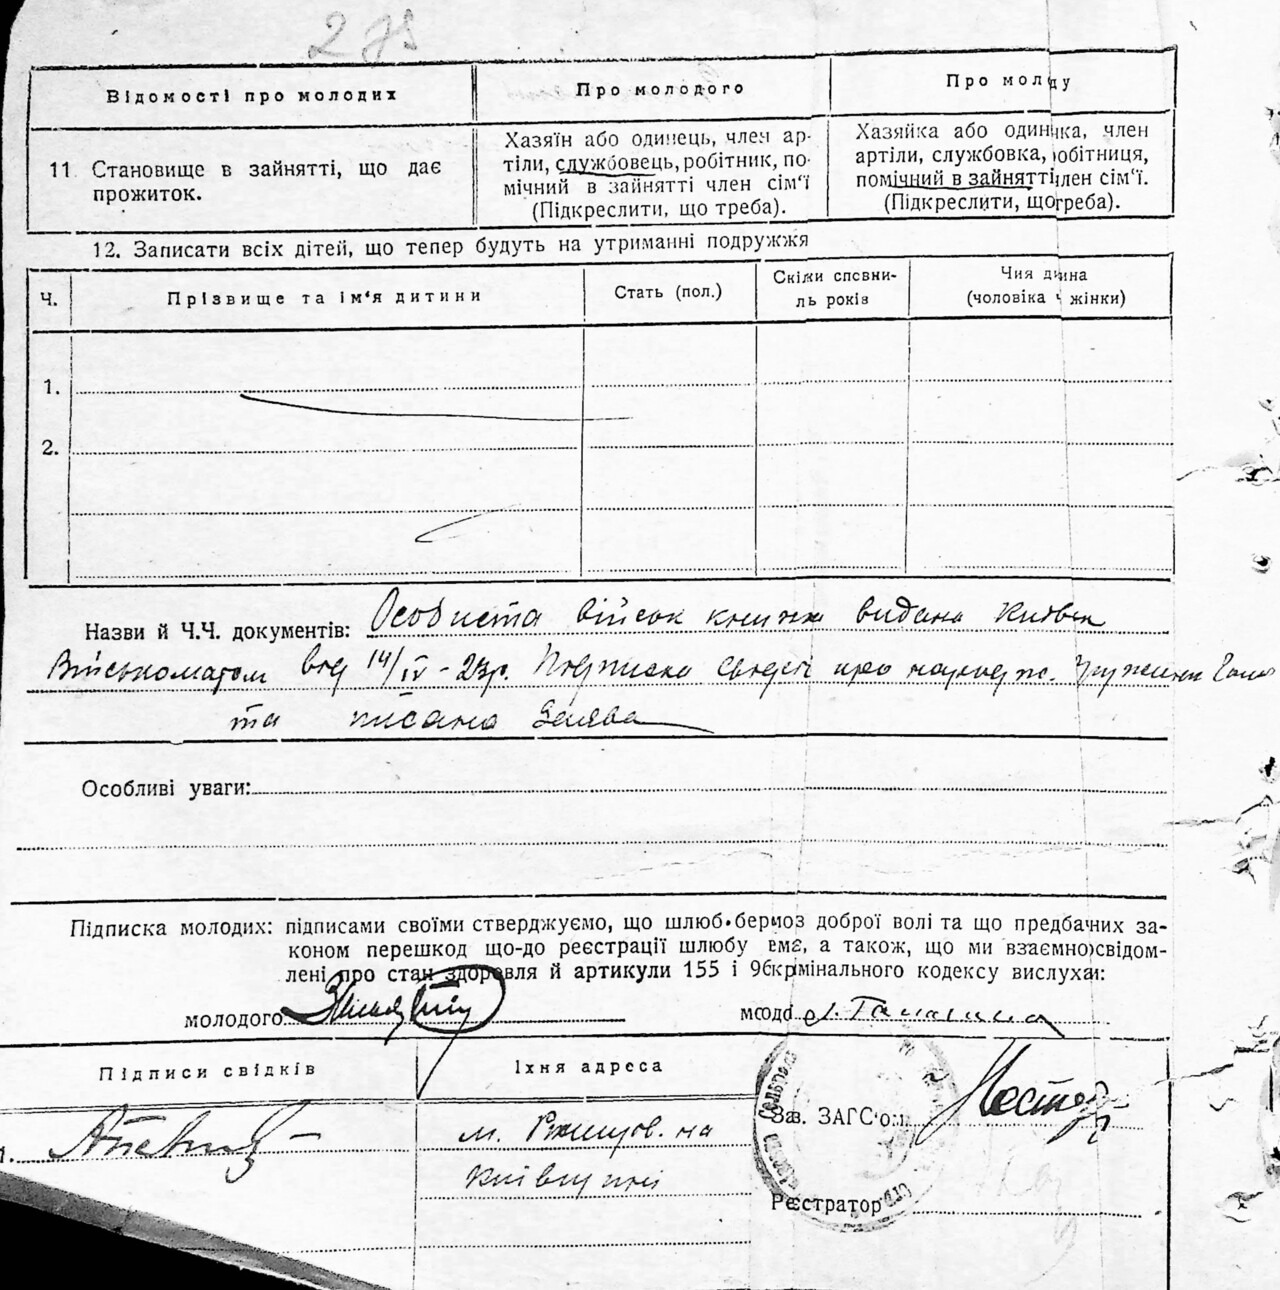 275
Відомості про молодих
Про молодого
Про молоду
11 Становище в зайнятті, що дає
прожиток.
Хазяїн або одинець, член ар-
тіли, службовець, робітник, по-
мічний в зайнятті член сім'ї
(Підкреслити, що треба).
Хазяйка або одиниця, член
артіли, службовка, робітниця,
помічний в зайнятті член сім'ї.
(Підкреслити, що треба).
12. Записати всіх дітей, що тепер будуть на утриманні подружжя
Ч.
Прізвище та ім'я дитини
Стать (пол.)
Скільки сповни-
ль років
Чия дитина
(чоловіка ч жінки)
1.
2.
Назви й Ч.Ч. документів: Особиста військ книжка видана Київск
Військоматом від 14/IV-23р. Підписка про дружини
та писана Заява
Особливі уваги:
Підписка молодих: підписами своїми стверджуємо, що шлюб беремо з доброї волі та що предбачних за-
коном перешкод що-до реєстрації шлюбу нема, а також, що ми взаємно освідом-
лені про стан здоровля й артикули 155 і 96 кримінального кодексу вислухали:
молодого
молодої Г. Галагина
Підписи свідків
Їхня адреса
1.
м. Ржищов. на
Київщині
Зав. ЗАГС'ом
Реєстратор